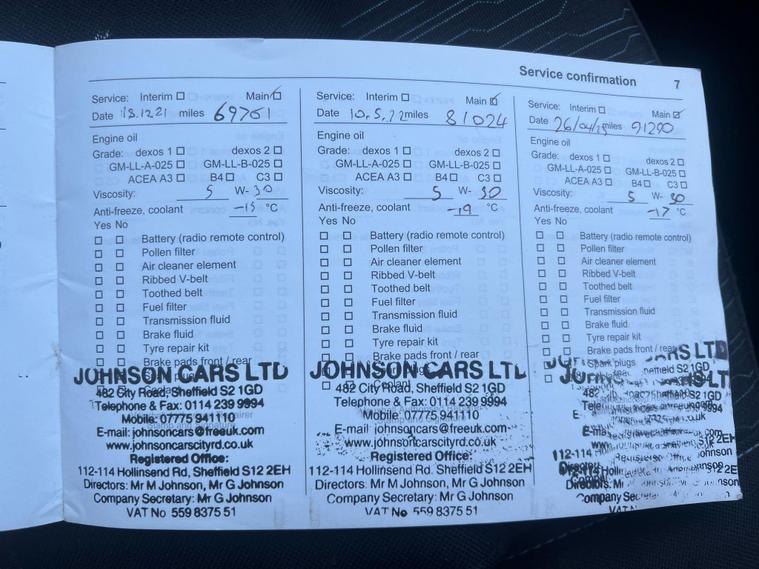 Service confirmation 7
Service: Interim ☐ Main ☑
Date 18.12.21 miles 69761
Engine oil
Grade: dexos 1 ☐ dexos 2 ☐
GM-LL-A-025 ☐ GM-LL-B-025 ☐
ACEA A3 ☐ B4 ☐ C3 ☐
Viscosity: 5 W- 30
Anti-freeze, coolant -15 °C
Yes No
☐ ☐ Battery (radio remote control)
☐ ☐ Pollen filter
☐ ☐ Air cleaner element
☐ ☐ Ribbed V-belt
☐ ☐ Toothed belt
☐ ☐ Fuel filter
☐ ☐ Transmission fluid
☐ ☐ Brake fluid
☐ ☐ Tyre repair kit
☐ ☐ Brake pads front / rear
JOHNSON CARS LTD
482 City Road, Sheffield S2 1GD
Telephone & Fax: 0114 239 9994
Mobile: 07775 941110
E-mail: johnsoncars@freeuk.com
www.johnsoncarscityrd.co.uk
Registered Office:
112-114 Hollinsend Rd, Sheffield S12 2EH
Directors: Mr M Johnson, Mr G Johnson
Company Secretary: Mr G Johnson
VAT No 559 8375 51
Service: Interim ☐ Main ☑
Date 10.5.22 miles 81024
Engine oil
Grade: dexos 1 ☐ dexos 2 ☐
GM-LL-A-025 ☐ GM-LL-B-025 ☐
ACEA A3 ☐ B4 ☐ C3 ☐
Viscosity: 5 W- 30
Anti-freeze, coolant -19 °C
Yes No
☐ ☐ Battery (radio remote control)
☐ ☐ Pollen filter
☐ ☐ Air cleaner element
☐ ☐ Ribbed V-belt
☐ ☐ Toothed belt
☐ ☐ Fuel filter
☐ ☐ Transmission fluid
☐ ☐ Brake fluid
☐ ☐ Tyre repair kit
☐ ☐ Brake pads front / rear
JOHNSON CARS LTD
482 City Road, Sheffield S2 1GD
Telephone & Fax: 0114 239 9994
Mobile: 07775 941110
E-mail: johnsoncars@freeuk.com
www.johnsoncarscityrd.co.uk
Registered Office:
112-114 Hollinsend Rd, Sheffield S12 2EH
Directors: Mr M Johnson, Mr G Johnson
Company Secretary: Mr G Johnson
VAT No 559 8375 51
Service: Interim ☐ Main ☑
Date 26/04/23 miles 91290
Engine oil
Grade: dexos 1 ☐ dexos 2 ☐
GM-LL-A-025 ☐ GM-LL-B-025 ☐
ACEA A3 ☐ B4 ☐ C3 ☐
Viscosity: 5 W- 30
Anti-freeze, coolant -17 °C
Yes No
☐ ☐ Battery (radio remote control)
☐ ☐ Pollen filter
☐ ☐ Air cleaner element
☐ ☐ Ribbed V-belt
☐ ☐ Toothed belt
☐ ☐ Fuel filter
☐ ☐ Transmission fluid
☐ ☐ Brake fluid
☐ ☐ Tyre repair kit
☐ ☐ Brake pads front / rear
☐ ☐ Spark plugs